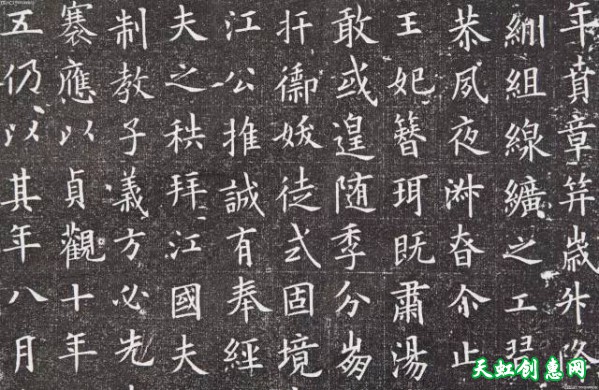 年賁章笄歲
組線纊之工習
恭夙夜淑昚尒止
王妃簪珥既肅湯
敢或遑随季分崤
扞禦徒式固境
江公推誠有奉經
夫之秩拜江國夫
制教子義方必先
褰應以貞觀十年
五仍以其年八月
天虹创惠网